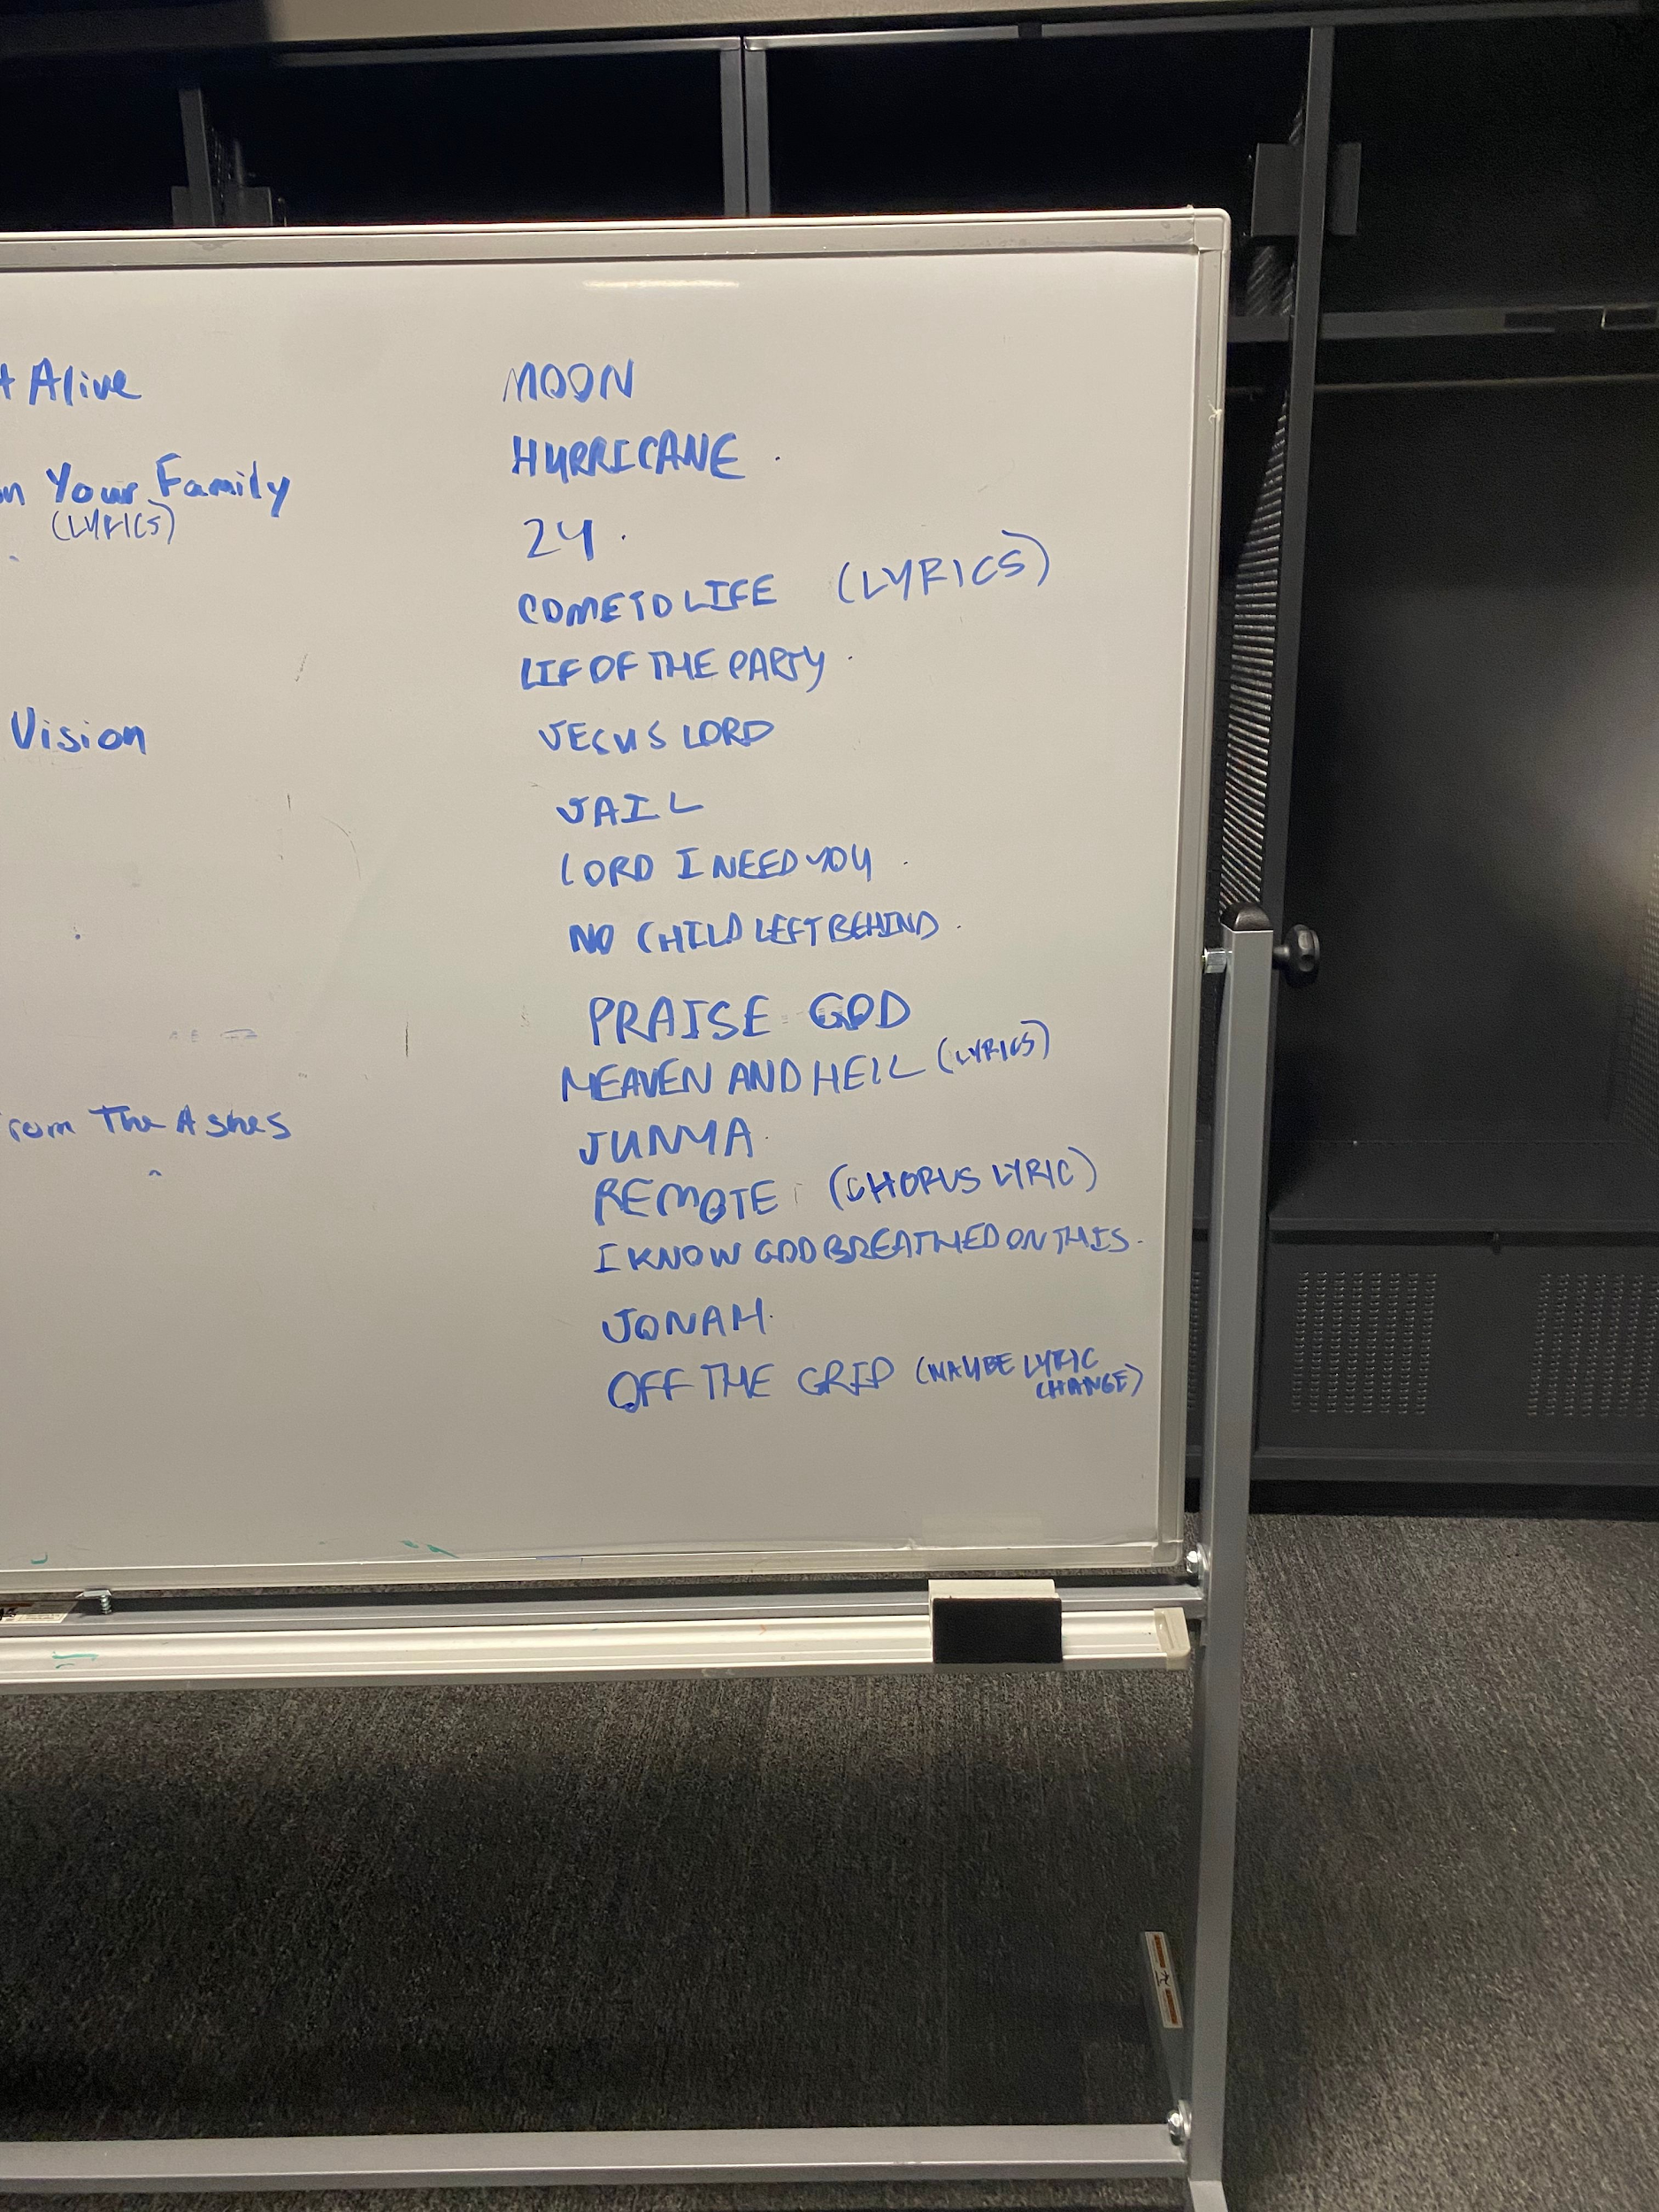 Alive
Your Family
(LYRICS)
Vision
From The Ashes
MOON
HURRICANE .
24 .
COME TO LIFE (LYRICS)
LIF OF THE PARTY .
JESUS LORD
JAIL
LORD I NEED YOU .
NO CHILD LEFT BEHIND .
PRAISE GOD
HEAVEN AND HELL (LYRICS)
JUNYA .
REMOTE (CHORUS LYRIC)
I KNOW GOD BREATHED ON THIS .
JONAH .
OFF THE GRID (MAYBE LYRIC
CHANGE)